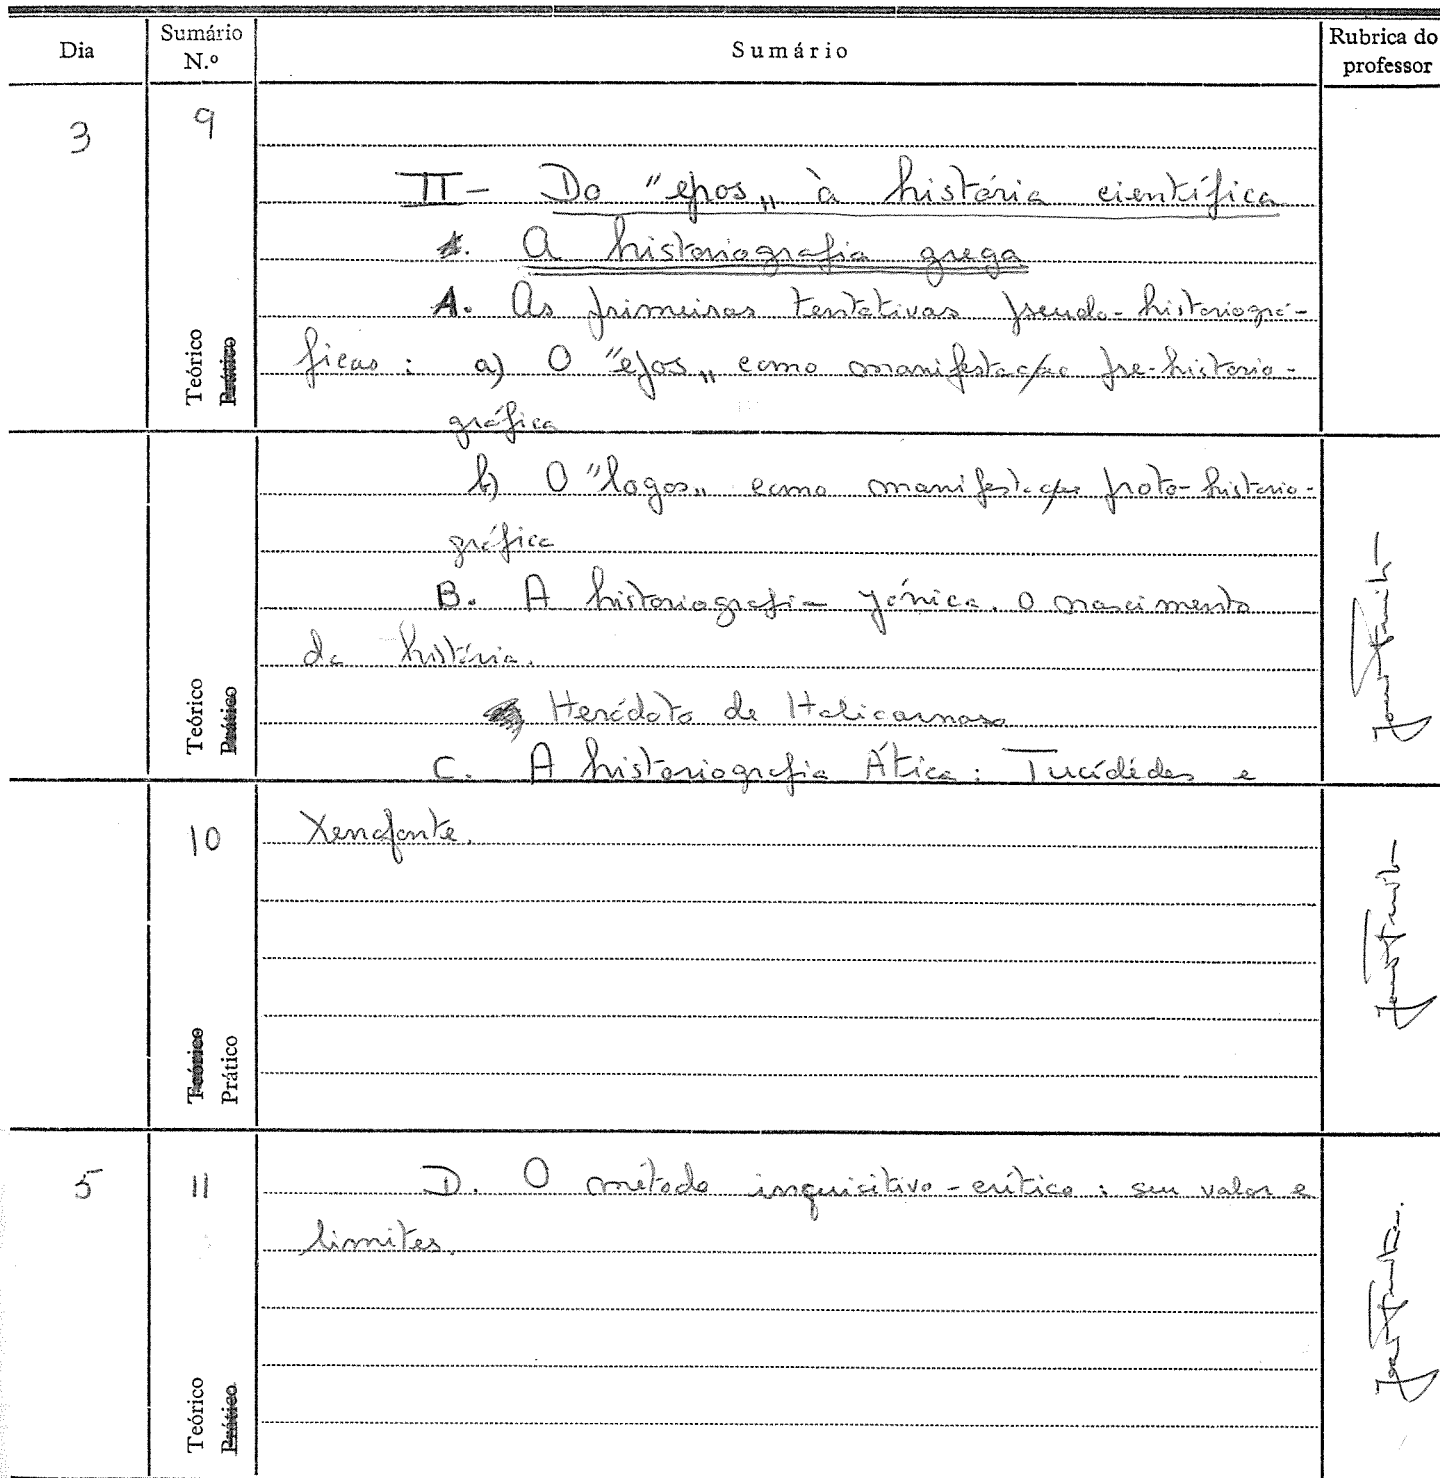 Dia Sumário N.º Sumário Rubrica do professor
3 9
II - Do "epos" à história científica
1. A historiografia grega
A. As primeiras tentativas pseudo-historiográ-
ficas: a) O "epos" como manifestação pre-historio-
gráfica
Teórico Prático
b) O "logos" como manifestação proto-historio-
gráfica
B. A historiografia jónica. O nascimento
da história.
Heródoto de Halicarnaso
C. A historiografia Ática: Tucídides e
Teórico Prático
10 Xenofonte.
Teórico Prático
5 11 D. O método inquisitivo-crítico: seu valor e
limites.
Teórico Prático